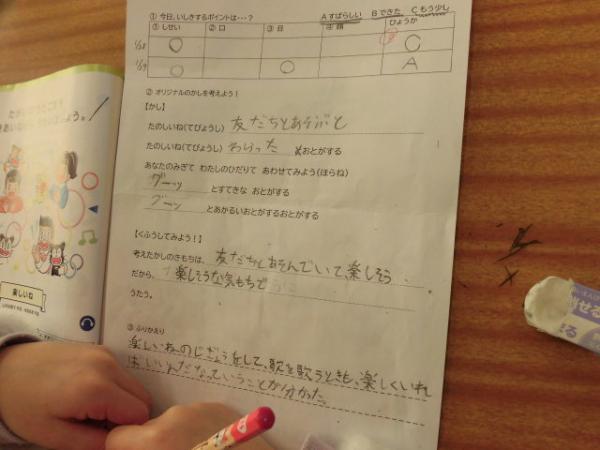 ① 今日、いしきするポイントは・・・?
Aすばらしい Bできた Cもう少し
① しせい ② 口 ③ 目 ④ 顔 ひょうか
1/28 ○ C
1/29 ○ ○ A
② オリジナルのかしを考えよう!
【かし】
たのしいね(てびょうし) 友だちとあそぶと
たのしいね(てびょうし) わらった おとがする
あなたのみぎて わたしのひだりて あわせてみよう(ほらね)
グーッ とすてきな おとがする
グーッ とあかるいおとがするおとがする
【くふうしてみよう!】
考えたかしのきもちは、友だちとあそんでいて、楽しそう
だから、楽しそうな気もちで
うたう。
③ ふりかえり
楽しいねのじぎょうをして、歌を歌うときも、楽しくいれ
ばいいんだなっていうことが分かった。
楽しいね